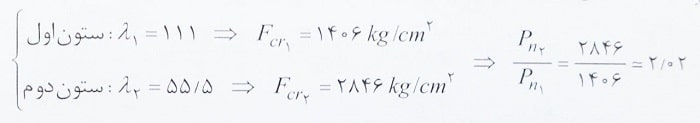 ستون اول : λ₁ = ۱۱۱ ⇒ F_cr₁ = ۱۴۰۶ kg/cm^۲
ستون دوم : λ₂ = ۵۵/۵ ⇒ F_cr₂ = ۲۸۴۶ kg/cm^۲
⇒ P_n₂ / P_n₁ = ۲۸۴۶ / ۱۴۰۶ ≃ ۲/۰۲